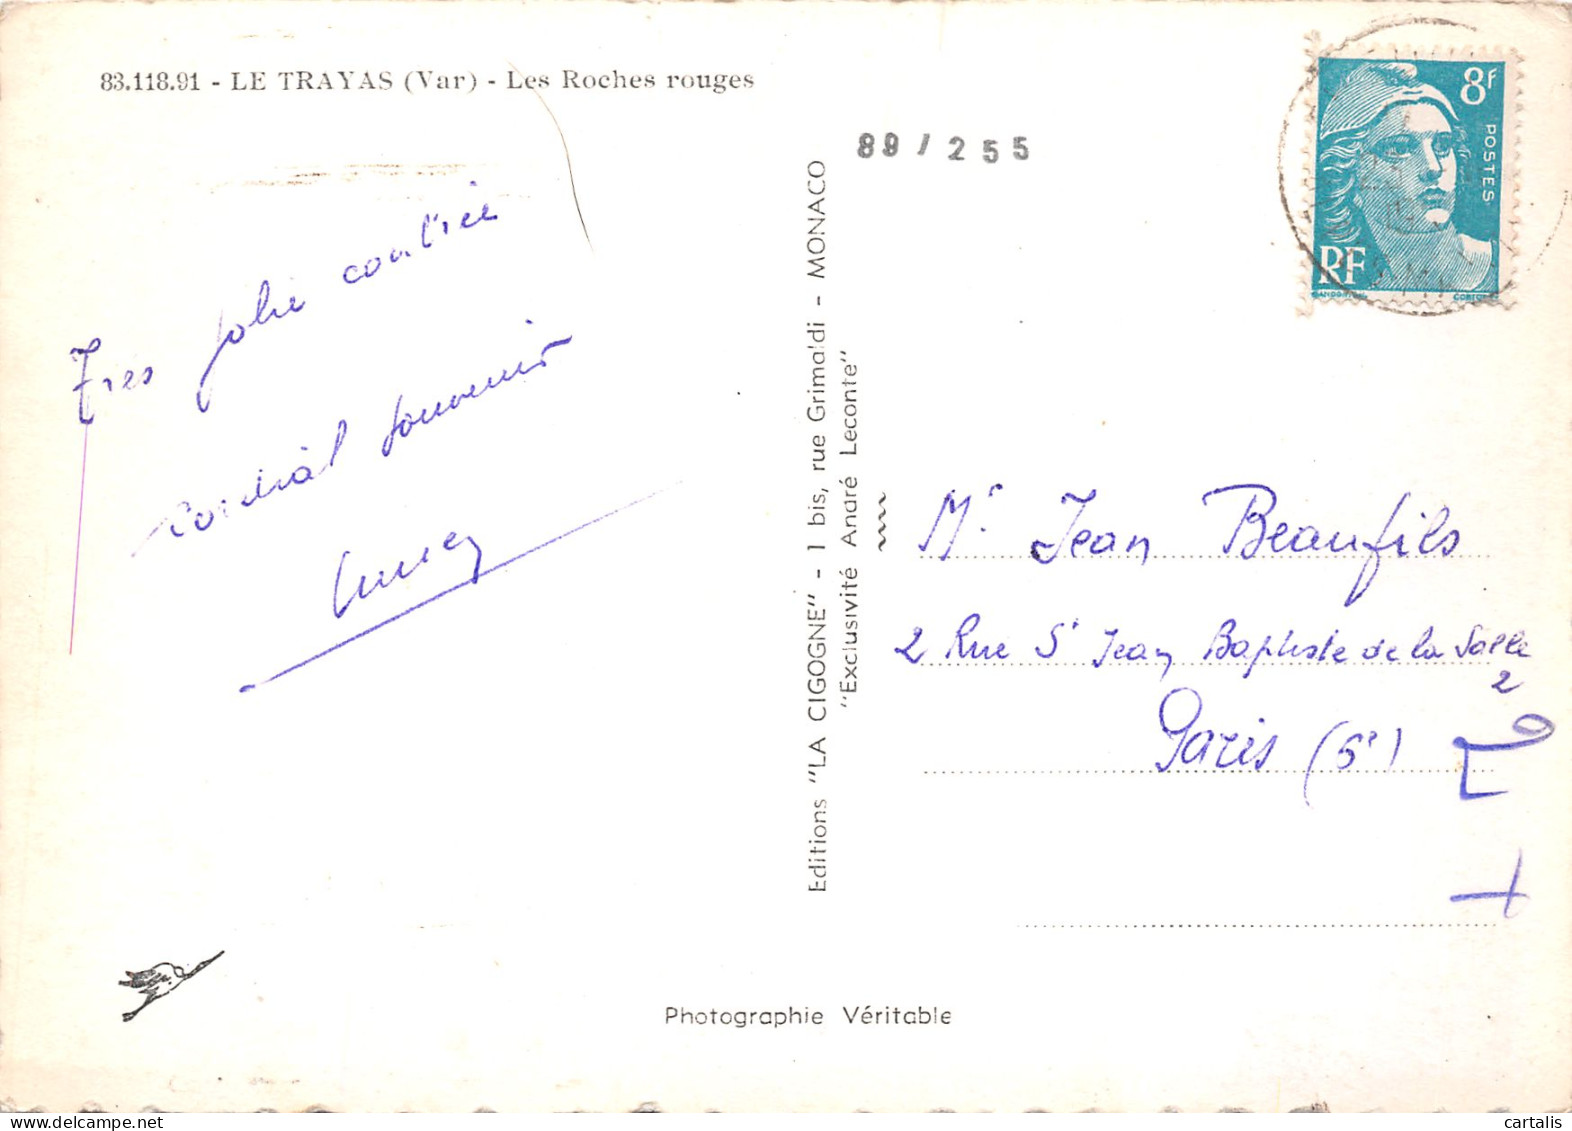 83.118.91 - LE TRAYAS (Var) - Les Roches rouges
89 / 255
8F
POSTES
RF
GANDON
Tres jolie contrée
cordial souvenir
Editions "LA CIGOGNE" - 1 bis, rue Grimaldi - MONACO
"Exclusivité André Leconte"
Mr Jean Beaufils
2 Rue St Jean Baptiste de la Salle
2
Paris (6e)
Photographie Véritable
delcampe.net
cartalis